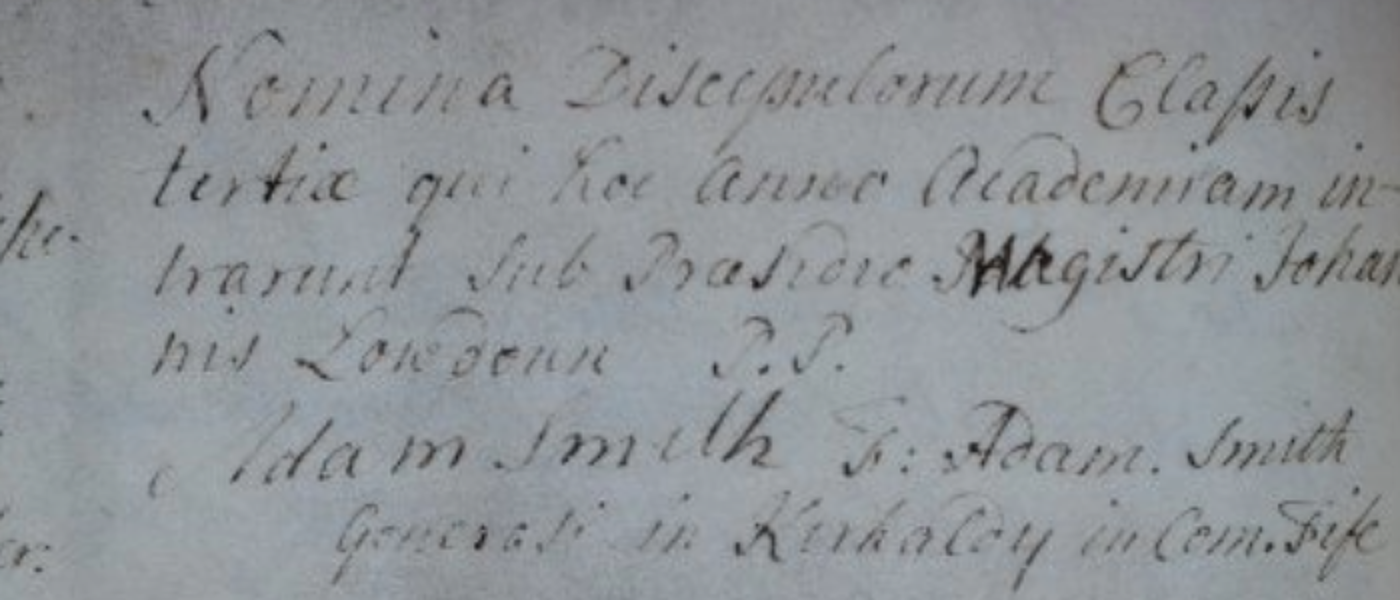 Nomina Discipulorum Claſsis
tertiæ qui hoc anno Academiam in-
trarunt sub Præsidio Magistri Johan
nis Lowdoun P.P.
Adam Smith F: Adam. Smith
Generosi in Kirkaldy in Com. Fife